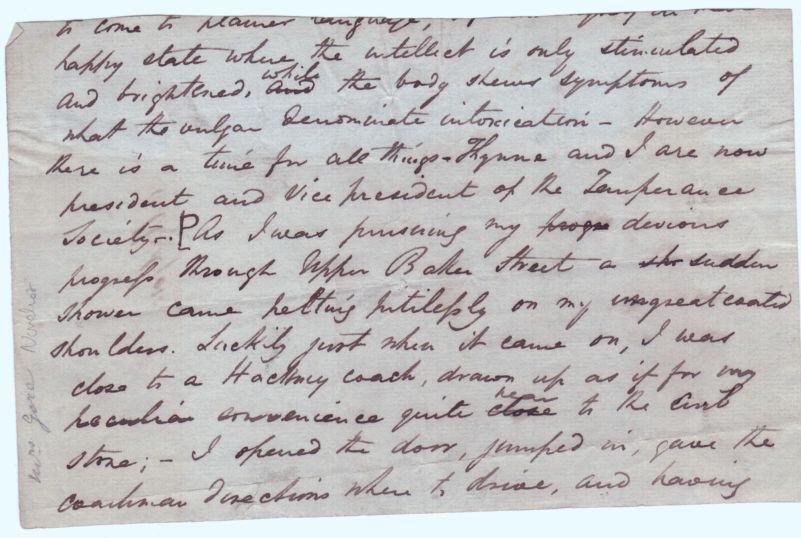 to come to plainer language,
happy state where the intellect is only stimulated
and brightened, and while the body shews symptoms of
what the vulgar denominate intoxication – However
there is a time for all things – Thynne and I are now
president and Vice president of the Temperance
Society –. [As I was pursuing my progre devious
progress through Upper Baker Street a sho sudden
shower came pelting pitilessly on my ungreatcoated
shoulders. Luckily just when it came on, I was
close to a Hackney coach, drawn up as if for my
peculiar convenience quite close near to the curb
stone; – I opened the door, jumped in, gave the
coachman directions where to drive, and having
Mrs Gore